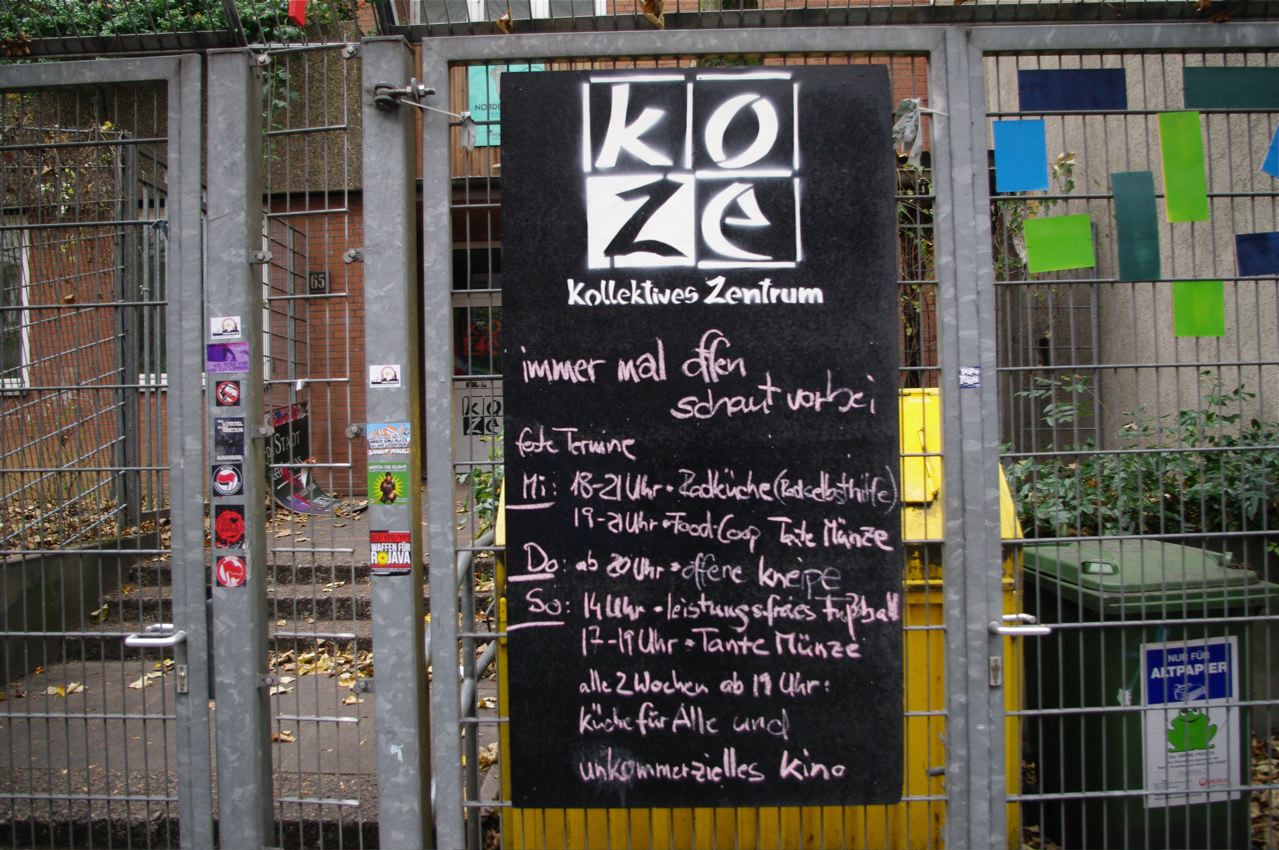 NORD
ko
ze
Kollektives Zentrum
immer mal offen
schaut vorbei
feste Termine
Mi: 18-21 Uhr • Radküche (Radselbsthilfe)
19-21 Uhr • Food Coop Tante Münze
Do: ab 20 Uhr • offene kneipe
So: 14 Uhr • leistungsfreies Fußball
17-19 Uhr • Tante Münze
alle 2 Wochen ab 19 Uhr:
küche für Alle und
unkommerzielles kino
65
KO
ZE
STADT
WAFFEN FÜR
ROJAVA
NUR FÜR
ALTPAPIER